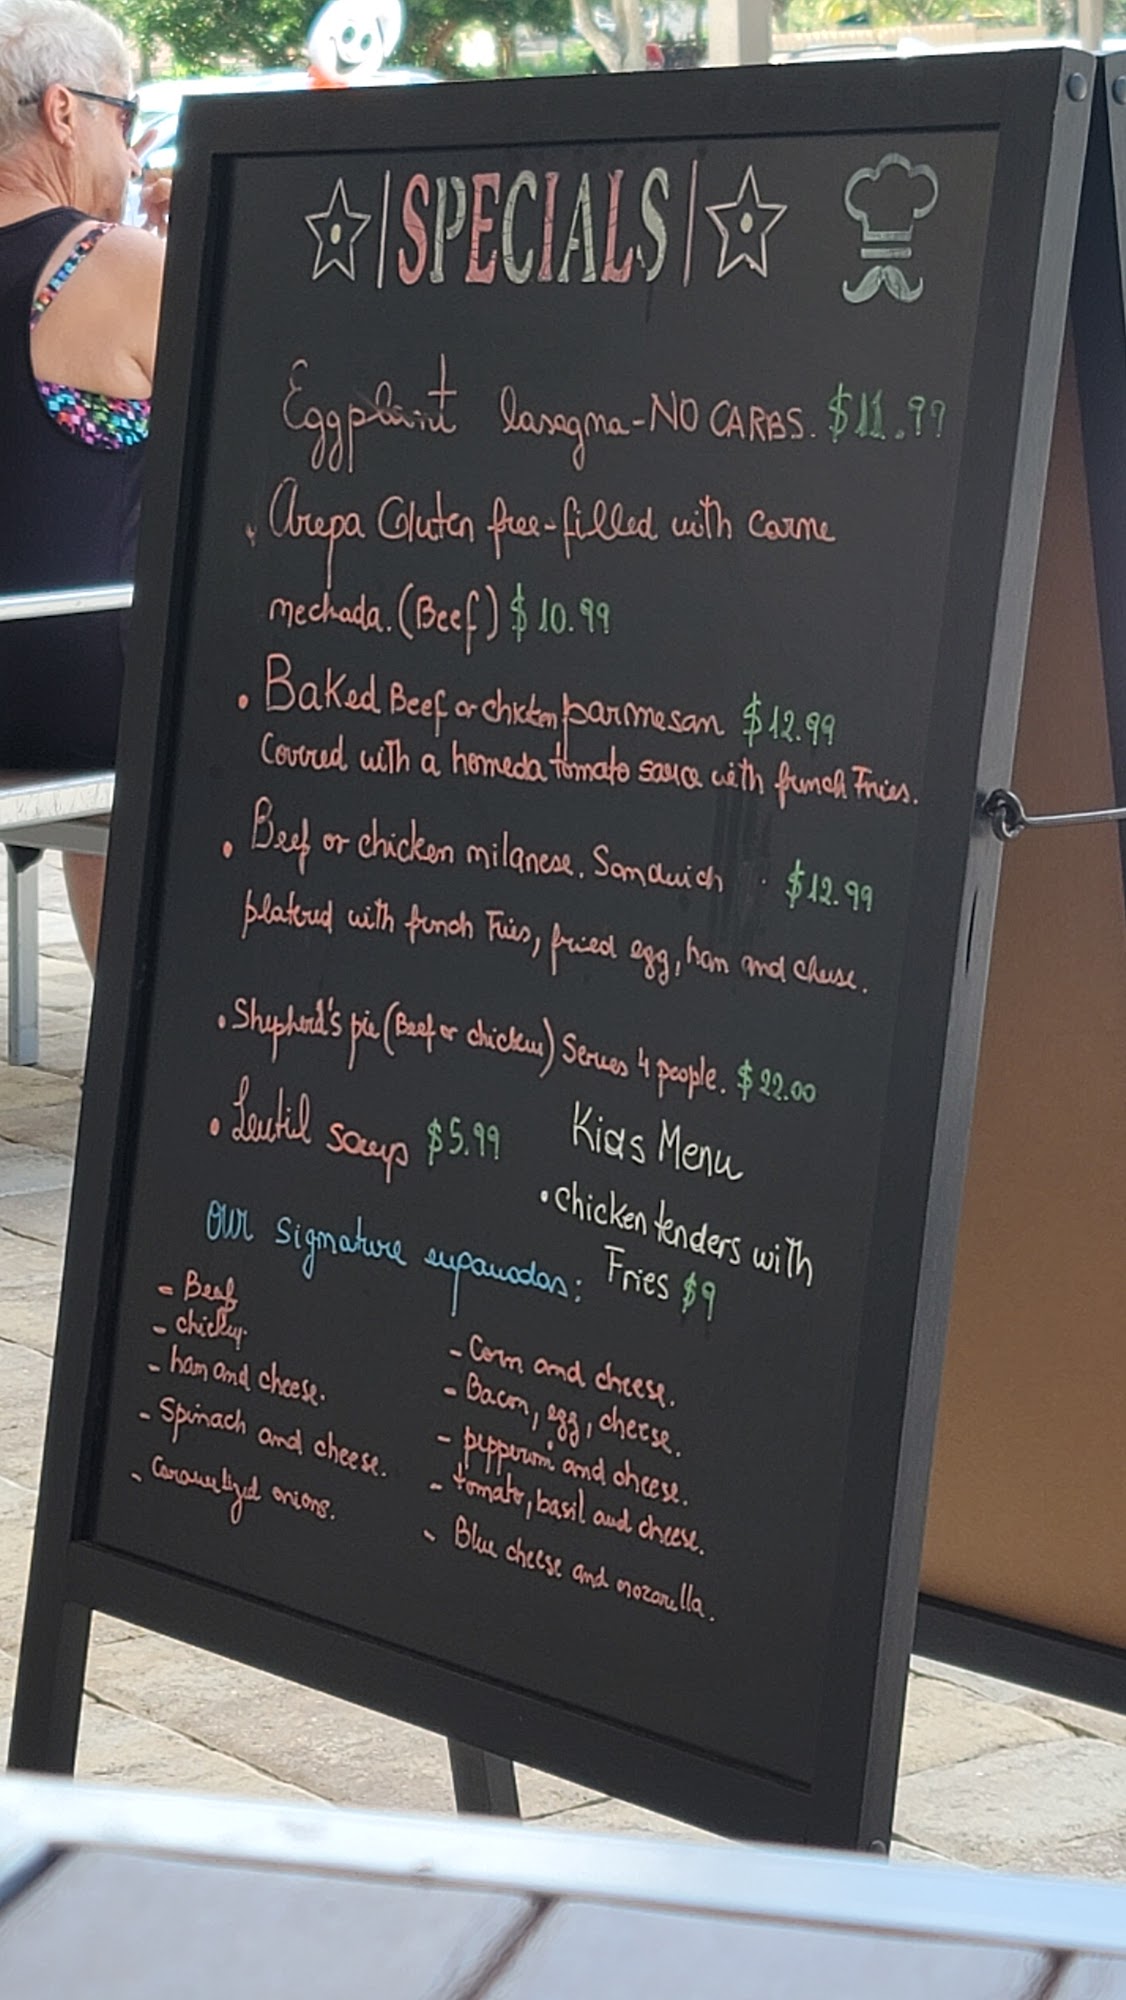 SPECIALS
Eggplant lasagna-NO CARBS. $11.99
Arepa Gluten free-filled with carne
mechada. (Beef) $10.99
Baked Beef or chicken parmesan $12.99
Covered with a homeda tomato sauce with french Fries.
Beef or chicken milanese. Sandwich $12.99
platered with french Fries, fried egg, ham and cheese.
Shepherd's pie (Beef or chicken) Serves 4 people. $22.00
Lentil soup $5.99
Kids Menu
chicken tenders with
Fries $9
our signature empanadas:
- Beef
- chicken.
- ham and cheese.
- Spinach and cheese.
- Caramelized onions.
- Corn and cheese.
- Bacon, egg, cheese.
- pepperoni and cheese.
- tomato, basil and cheese.
- Blue cheese and mozarella.